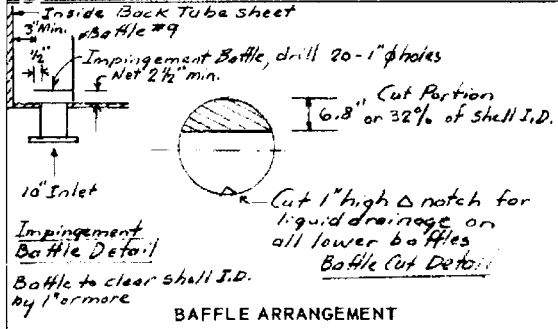 Inside Back Tube sheet
3" Min.
Baffle #9
1/2"
Impingement Baffle, drill 20-1" ϕ holes
Net 2 1/2" min.
Cut Portion
6.8" or 32% of shell I.D.
10" Inlet
Cut 1" high Δ notch for
liquid drainage on
all lower baffles
Impingement
Baffle Detail
Baffle Cut Detail
Baffle to clear shell I.D.
by 1" or more
BAFFLE ARRANGEMENT